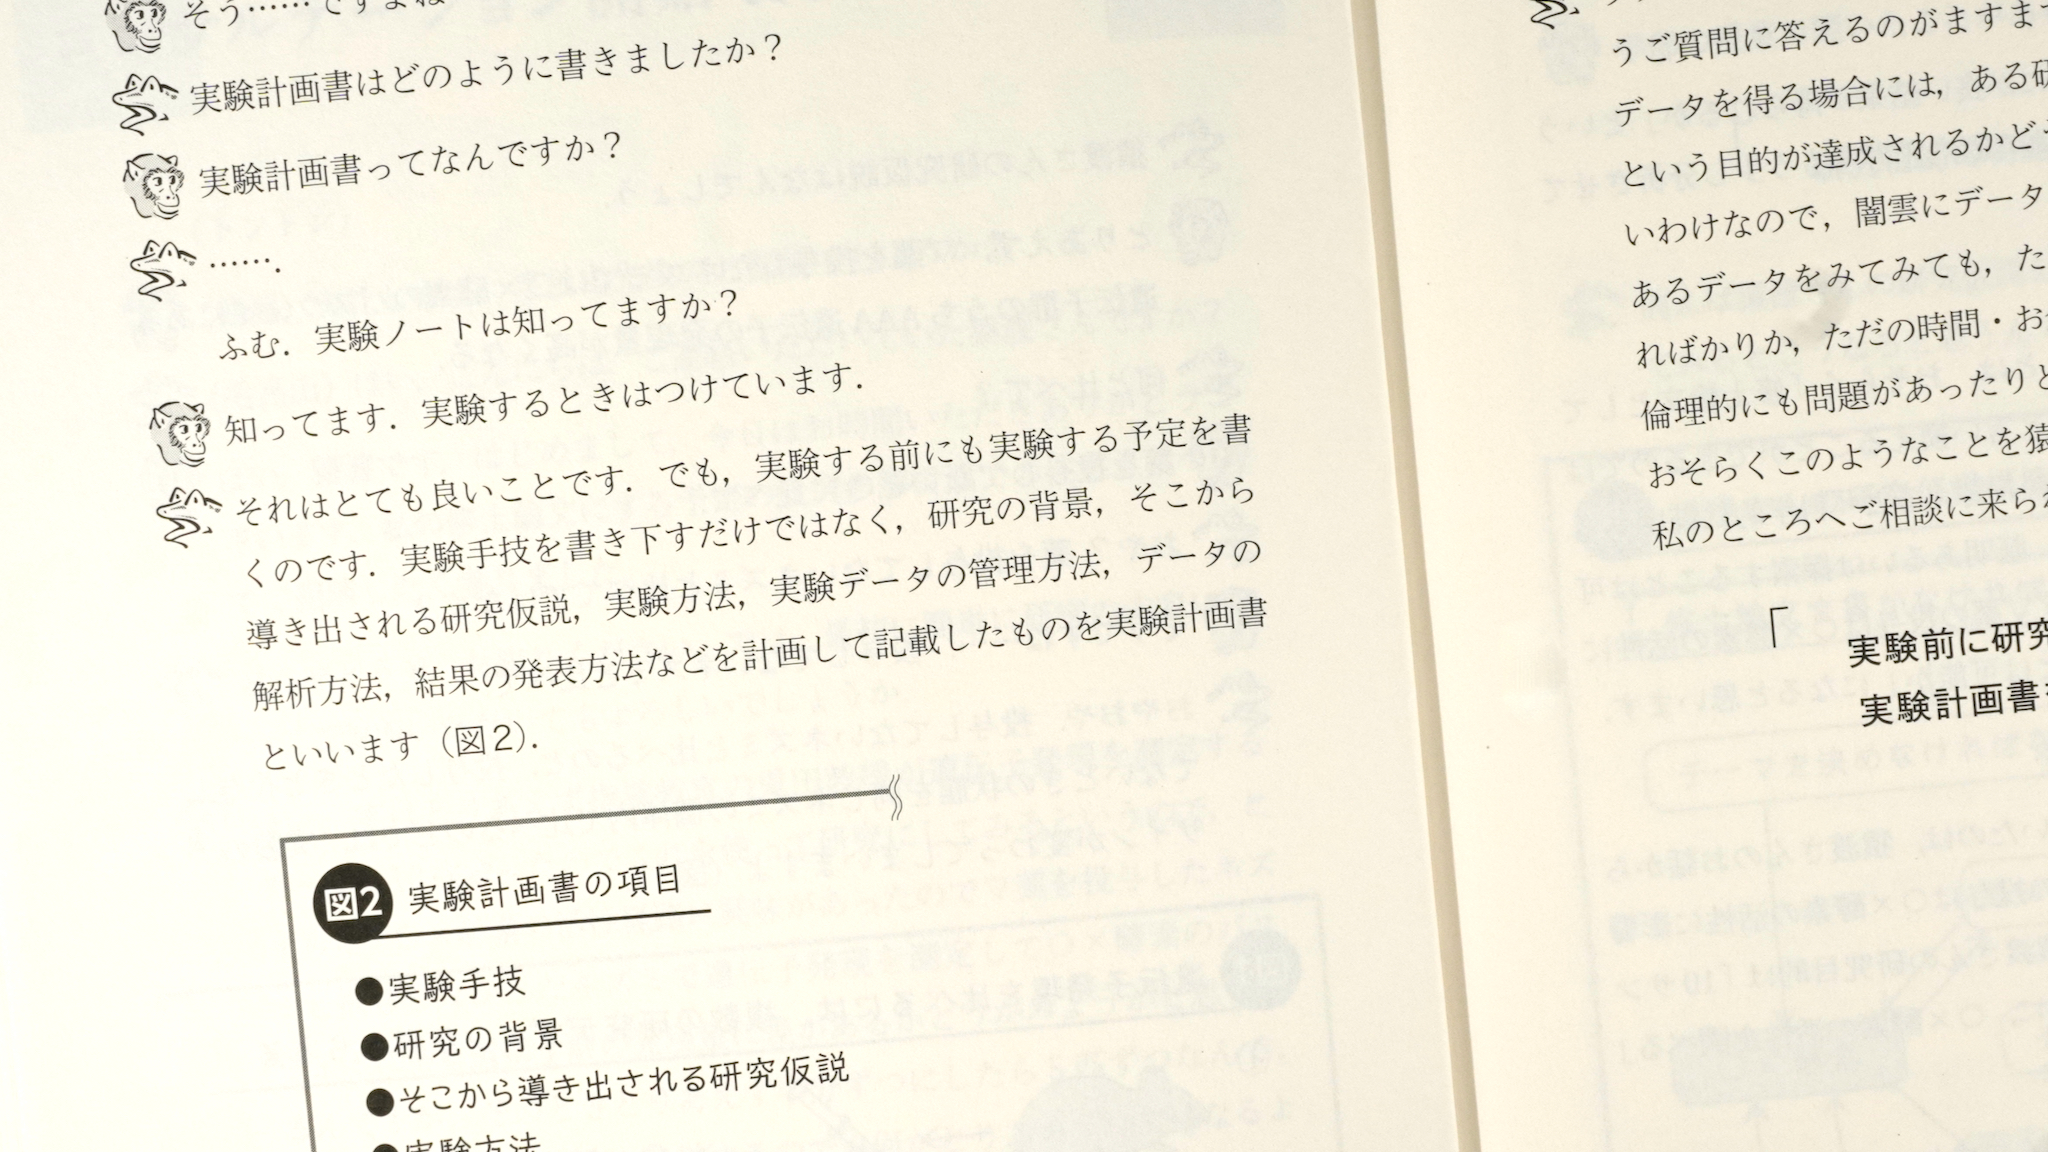 そう……ですよね
実験計画書はどのように書きましたか？
実験計画書ってなんですか？
…….
ふむ．実験ノートは知ってますか？
知ってます．実験するときはつけています．
それはとても良いことです．でも，実験する前にも実験する予定を書
くのです．実験手技を書き下すだけではなく，研究の背景，そこから
導き出される研究仮説，実験方法，実験データの管理方法，データの
解析方法，結果の発表方法などを計画して記載したものを実験計画書
といいます（図2）．
図2 実験計画書の項目
●実験手技
●研究の背景
●そこから導き出される研究仮説
●実験方法
うご質問に答えるのがますま
データを得る場合には，ある研
という目的が達成されるかど
いわけなので，闇雲にデータ
あるデータをみてみても，た
ればかりか，ただの時間・お
倫理的にも問題があったりと
おそらくこのようなことを猿
私のところへご相談に来られ
「
実験前に研究
実験計画書